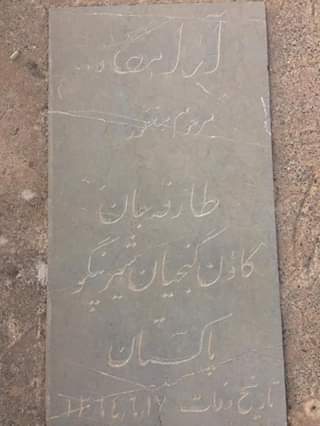 آرامگاه
مرحوم مغفور
طارفہ جان
گاؤن گنجیان شیرینگو
پاکستان
تاریخ وفات ۱۳۶۴٫۶٫۱۷